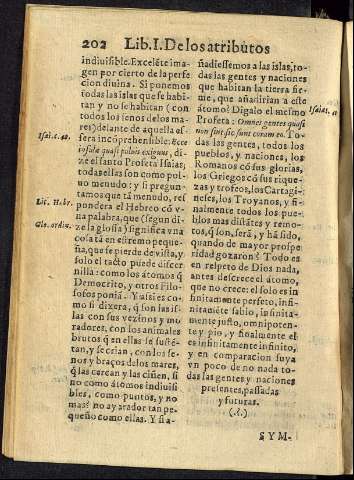 202 Lib. I. De los atributos
indiuisible. Excelẽte ima-
gen por cierto de la perfe
cion diuina. Si ponemos
todas las islas que se habi-
tan y no se habitan (con
todos los senos delos ma-
res) delante de aquella es-
Isai. c. 40.
fera incõprehensible: Ecce
insulæ quasi puluis exiguus, di-
ze el santo Profeta Isaias;
todas ellas son como pol-
uo menudo: y si pregun-
tamos que tá menudo, res
Lit. Hebr.
pondera el Hebreo có v-
na palabra, que (segun di-
Glo. ordin.
ze la glossa) significa vna
cosa tá en estremo peque-
ña, que se pierde de vista, y
solo el tacto puede discer-
nilla: como los átomos q̃
Democrito, y otros Filo-
sofos ponia. Y assi es co-
mo si dixera, q̃ son las is-
las con sus vezinos y mo
radores, con los animales
brutos q̃ en ellas se susté-
tan, y se crian, con los se-
nos y braços del os mares,
q̃ las cercan y las ciñen, si
no como átomos indiuisi
bles, como puntos, y no
mas? no ay arador tan pe-
queño como ellas. Y si a-
ñadiessemos a las islas, to-
das las gentes y naciones
que habitan la tierra fir-
me, que añadirian a este
átomo? Digalo el mesmo
Isaiæ. 40.
Profeta: Omnes gentes quasi
non sint sic sunt coram eo. To-
das las gentes, todos los
pueblos, y naciones, los
Romanos có sus glorias,
los Griegos có sus rique-
zas y trofeos, los Cartagi-
neses, los Troyanos, y fi-
nalmente todos los pue-
blos mas distátes, y remo-
tos, q̃ son, será, y há sido,
quando de mayor prospe-
ridad gozaron? Todo es
en respeto de Dios nada,
antes descrece el átomo,
que no crece: el solo es in
finitamente perfeto, infi-
nitaméte sabio, infinita-
mente justo, omnipoten-
te y pio, y finalmente el
es infinitamente infinito,
y en comparacion suya
vn poco de no nada to-
das las gentes y naciones
presentes, passadas
y futuras.
(.?.)
SYM-